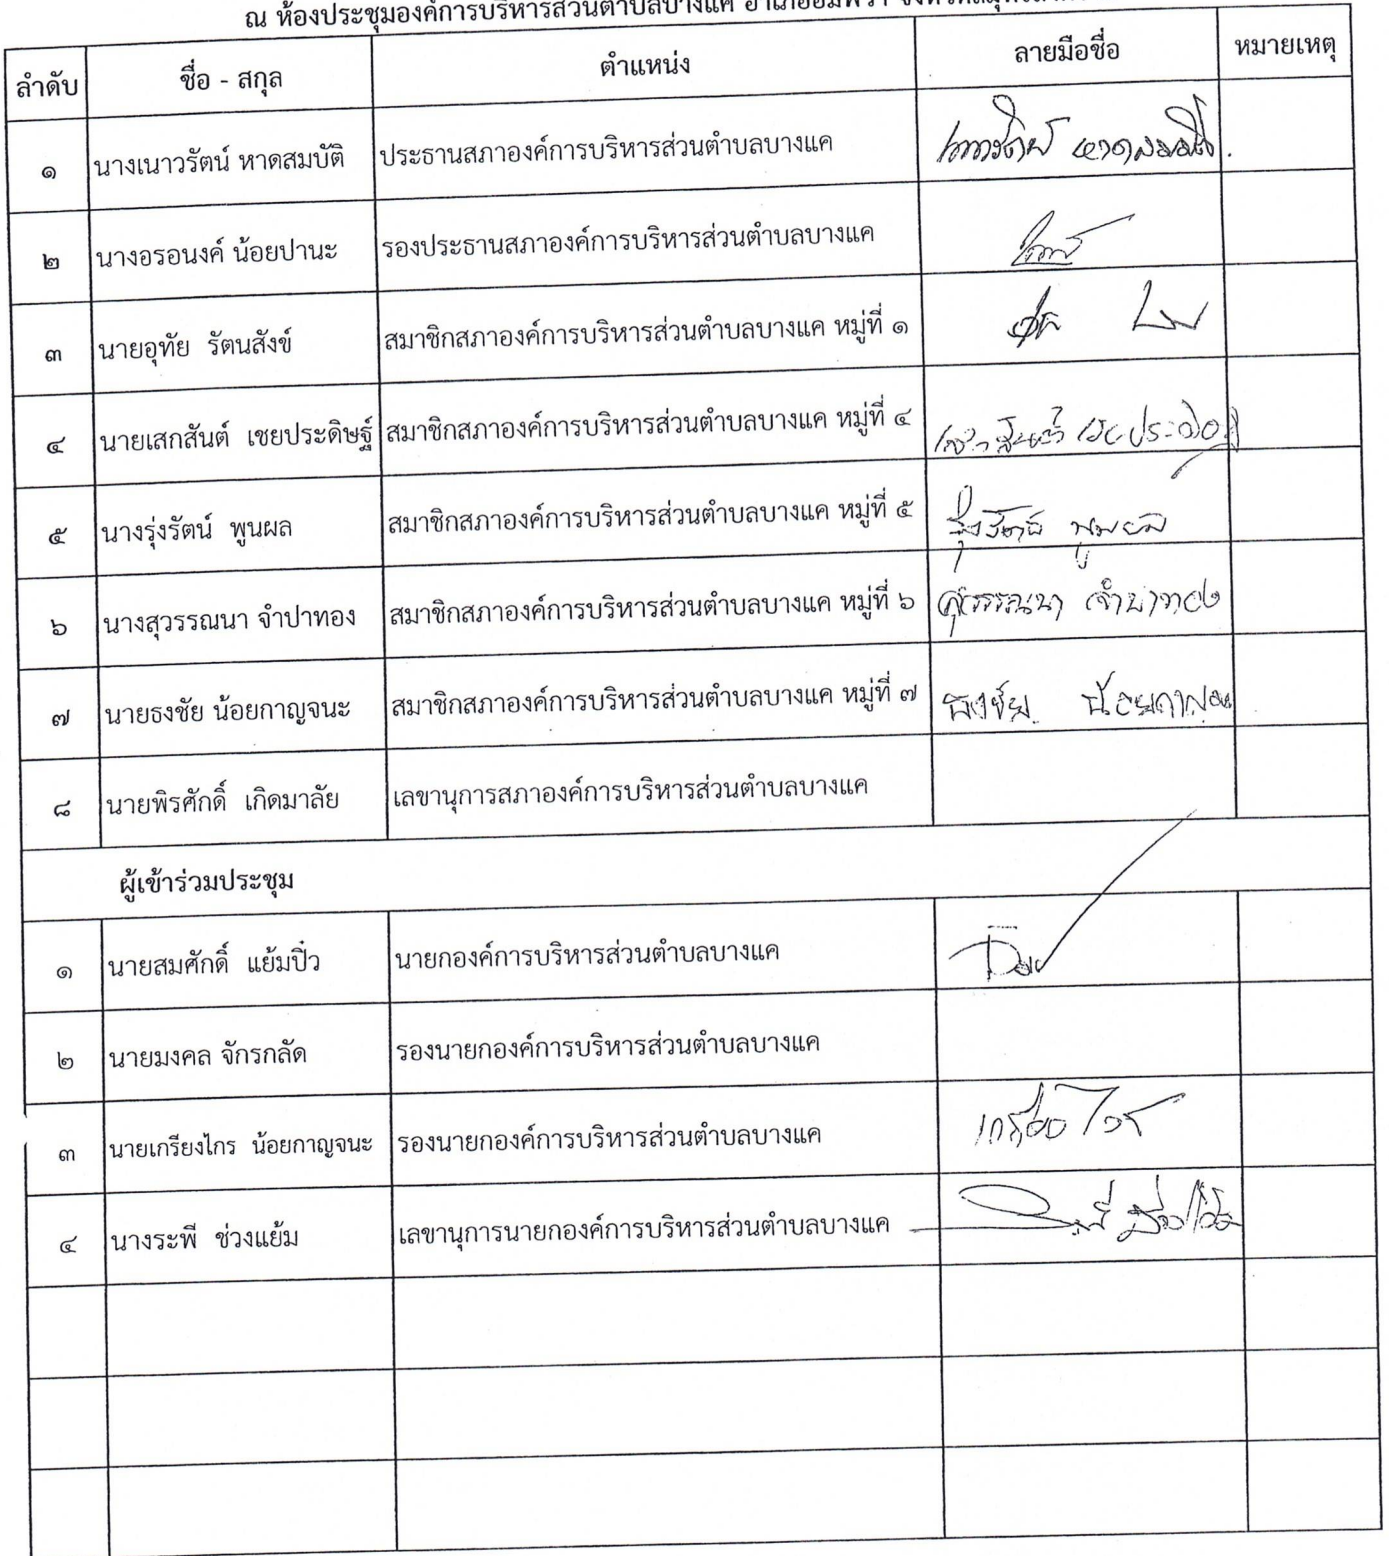 ณ ห้องประชุมองค์การบริหารส่วนตำบลบางแค อำเภออัมพวา
ลำดับ ชื่อ - สกุล ตำแหน่ง ลายมือชื่อ หมายเหตุ
๑ นางเนาวรัตน์ หาดสมบัติ ประธานสภาองค์การบริหารส่วนตำบลบางแค เนาวรัตน์ หาดสมบัติ
๒ นางอรอนงค์ น้อยปานะ รองประธานสภาองค์การบริหารส่วนตำบลบางแค
๓ นายอุทัย รัตนสังข์ สมาชิกสภาองค์การบริหารส่วนตำบลบางแค หมู่ที่ ๑
๔ นายเสกสันต์ เชยประดิษฐ์ สมาชิกสภาองค์การบริหารส่วนตำบลบางแค หมู่ที่ ๔
๕ นางรุ่งรัตน์ พูนผล สมาชิกสภาองค์การบริหารส่วนตำบลบางแค หมู่ที่ ๕ รุ่งรัตน์ พูนผล
๖ นางสุวรรณนา จำปาทอง สมาชิกสภาองค์การบริหารส่วนตำบลบางแค หมู่ที่ ๖ สุวรรณนา จำปาทอง
๗ นายธงชัย น้อยกาญจนะ สมาชิกสภาองค์การบริหารส่วนตำบลบางแค หมู่ที่ ๗ ธงชัย
๘ นายพิรศักดิ์ เกิดมาลัย เลขานุการสภาองค์การบริหารส่วนตำบลบางแค
ผู้เข้าร่วมประชุม
๑ นายสมศักดิ์ แย้มปิ๋ว นายกองค์การบริหารส่วนตำบลบางแค
๒ นายมงคล จักรกลัด รองนายกองค์การบริหารส่วนตำบลบางแค
๓ นายเกรียงไกร น้อยกาญจนะ รองนายกองค์การบริหารส่วนตำบลบางแค เกรียงไกร
๔ นางระพี ช่วงแย้ม เลขานุการนายกองค์การบริหารส่วนตำบลบางแค